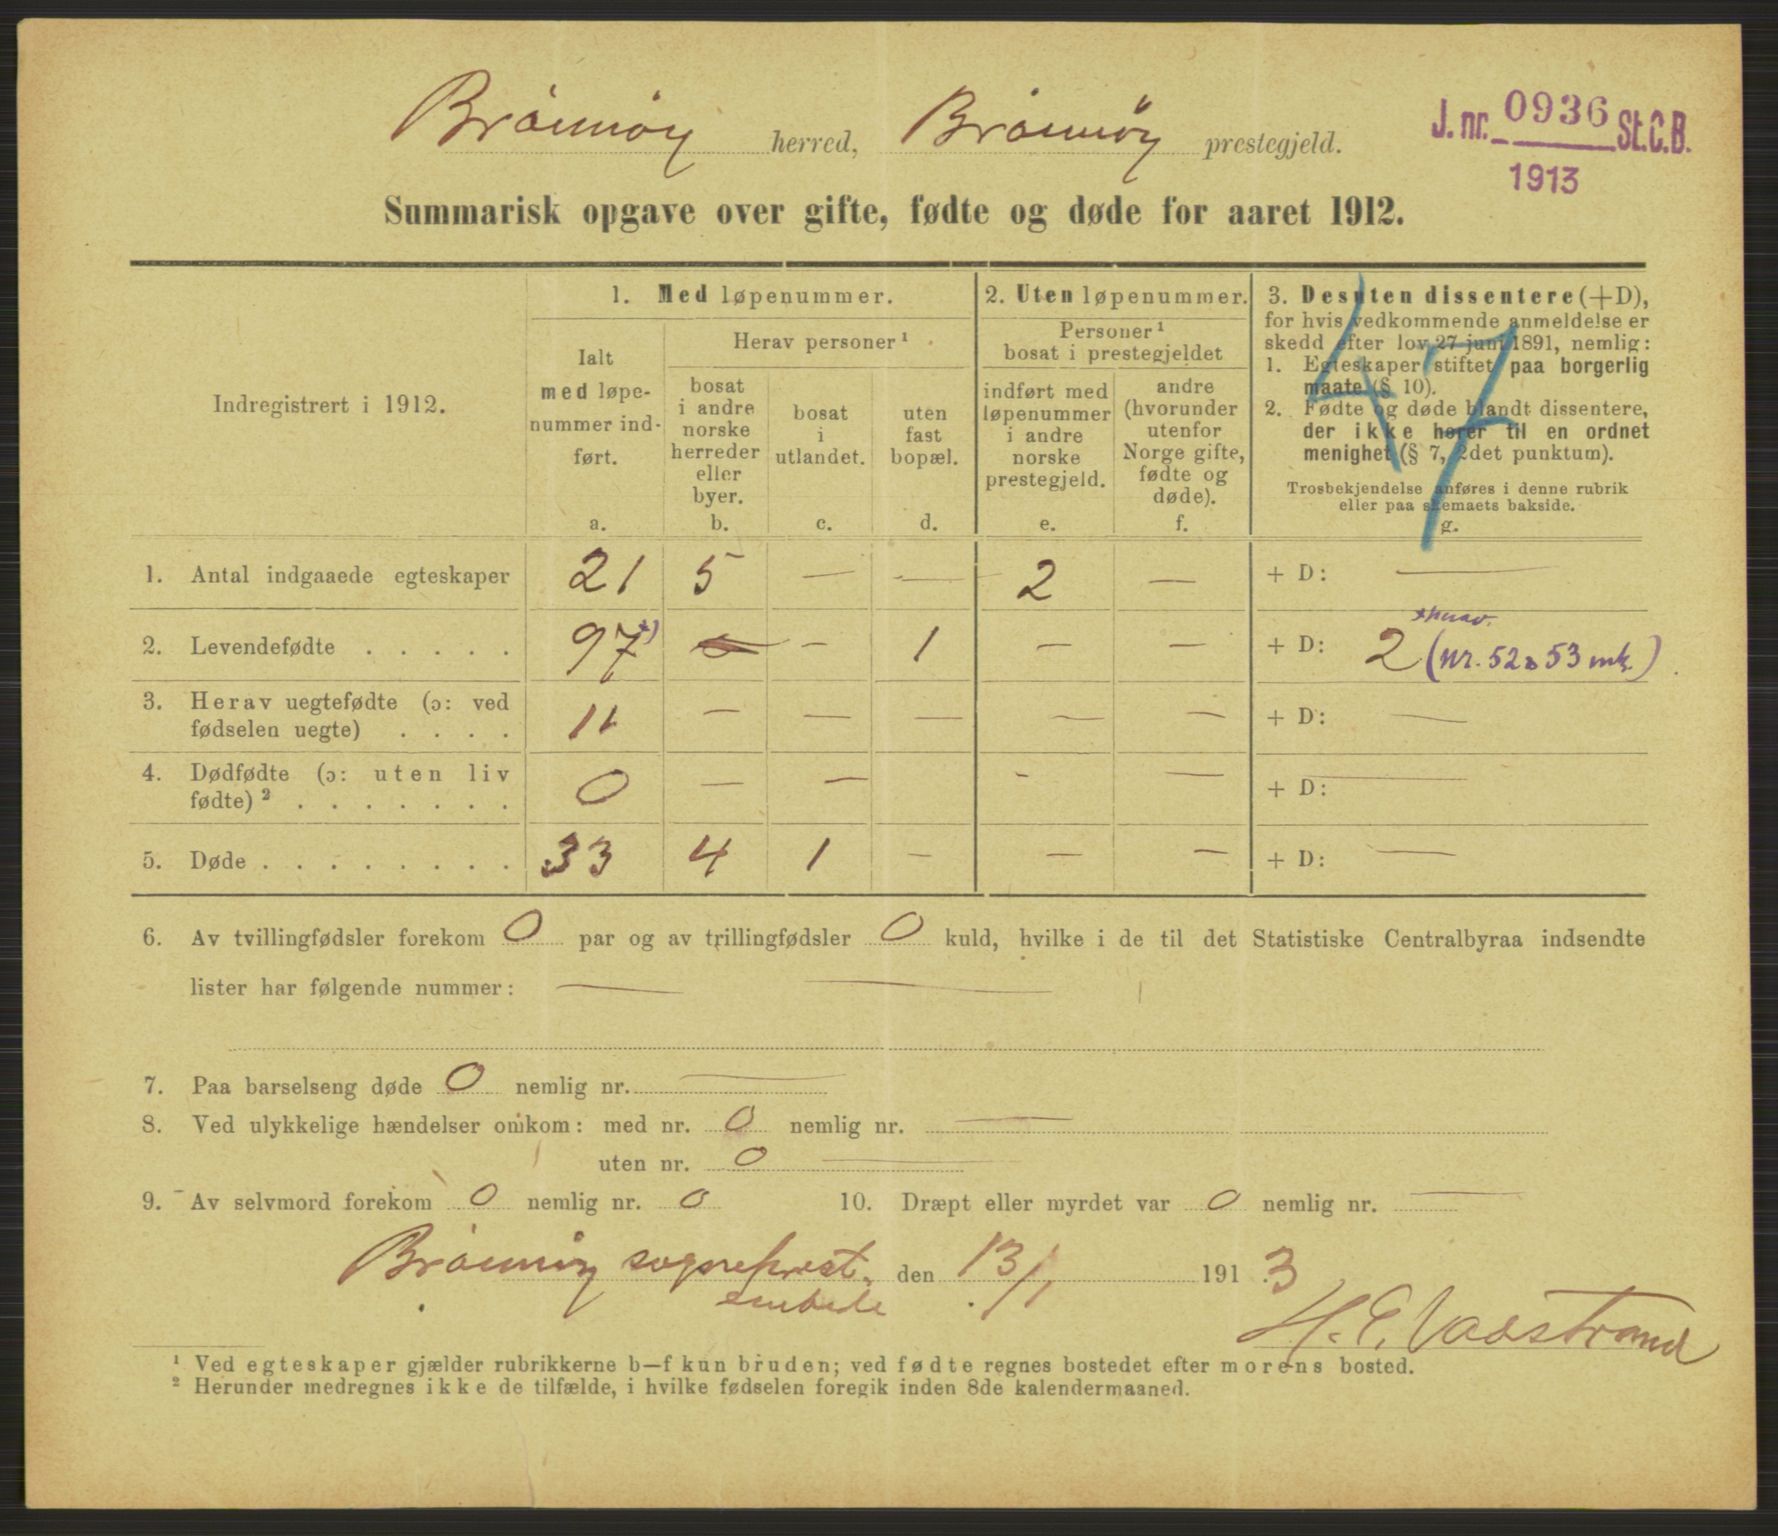 Brönnöy herred, Brönnöy prestegjeld.
J. nr. 0936 St.C.B.
1913
Summarisk opgave over gifte, fødte og døde for aaret 1912.
Indregistrert i 1912.
1. Med løpenummer.
Ialt
med løpe-
nummer ind-
ført.
a.
Herav personer ¹
bosat
i andre
norske
herreder
eller
byer.
b.
bosat
i
utlandet.
c.
uten
fast
bopæl.
d.
2. Uten løpenummer.
Personer ¹
bosat i prestegjeldet
indført med
løpenummer
i andre
norske
prestegjeld.
e.
andre
(hvorunder
utenfor
Norge gifte,
fødte og
døde).
f.
3. Desuten dissentere (+D),
for hvis vedkommende anmeldelse er
skedd efter lov 27 juni 1891, nemlig:
1. Egteskaper stiftet paa borgerlig
maate (§ 10).
2. Fødte og døde blandt dissentere,
der ikke hører til en ordnet
menighet (§ 7, 2det punktum).
Trosbekjendelse anføres i denne rubrik
eller paa skemaets bakside.
g.
47
1. Antal indgaaede egteskaper 21 5 — — 2 — + D: —
2. Levendefødte . . . . . 97 *) — 1 — — + D: 2 (nr. 52 & 53 mk.)
3. Herav uegtefødte (ɔ: ved
fødselen uegte) . . . . 11 — — — — — + D: —
4. Dødfødte (ɔ: uten liv
fødte) ² . . . . . . . 0 — — - — + D: —
5. Døde . . . . . . . . 33 4 1 — — — + D: —
6. Av tvillingfødsler forekom 0 par og av trillingfødsler 0 kuld, hvilke i de til det Statistiske Centralbyraa indsendte
lister har følgende nummer: — —
7. Paa barselseng døde 0 nemlig nr. —
8. Ved ulykkelige hændelser omkom: med nr. 0 nemlig nr. —
uten nr. 0 —
9. Av selvmord forekom 0 nemlig nr. 0 10. Dræpt eller myrdet var 0 nemlig nr. —
Brönnöy sogneprest-
embede
den 13/1 1913
H. E. Vaastrand
¹ Ved egteskaper gjælder rubrikkerne b—f kun bruden; ved fødte regnes bostedet efter morens bosted.
² Herunder medregnes ikke de tilfælde, i hvilke fødselen foregik inden 8de kalendermaaned.